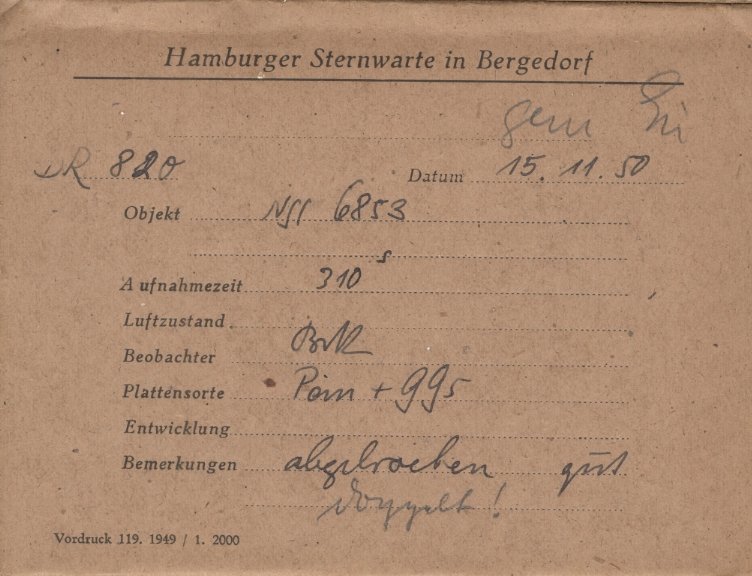 Hamburger Sternwarte in Bergedorf
DR 820 Datum 15. 11. 50
Objekt 6853
Aufnahmezeit 310 s
Luftzustand
Beobachter
Plattensorte + 995
Entwicklung
Bemerkungen abgebrochen gut
doppelt!
Vordruck 119. 1949 / 1. 2000